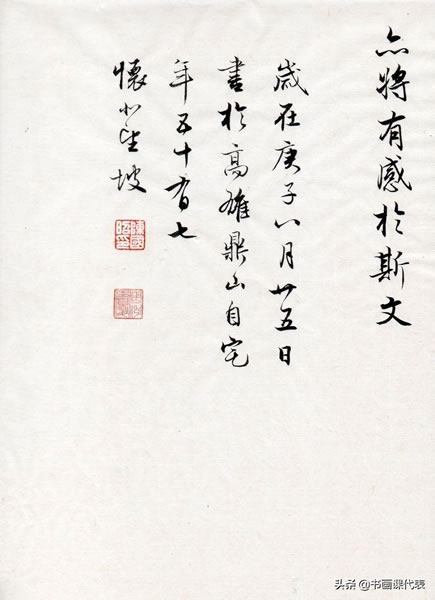 亦將有感於斯文
歲在庚子八月廿五日
書於高雄鼎山自宅
年五十有七
懷坡
陳國昭印
头条 @书画课代表